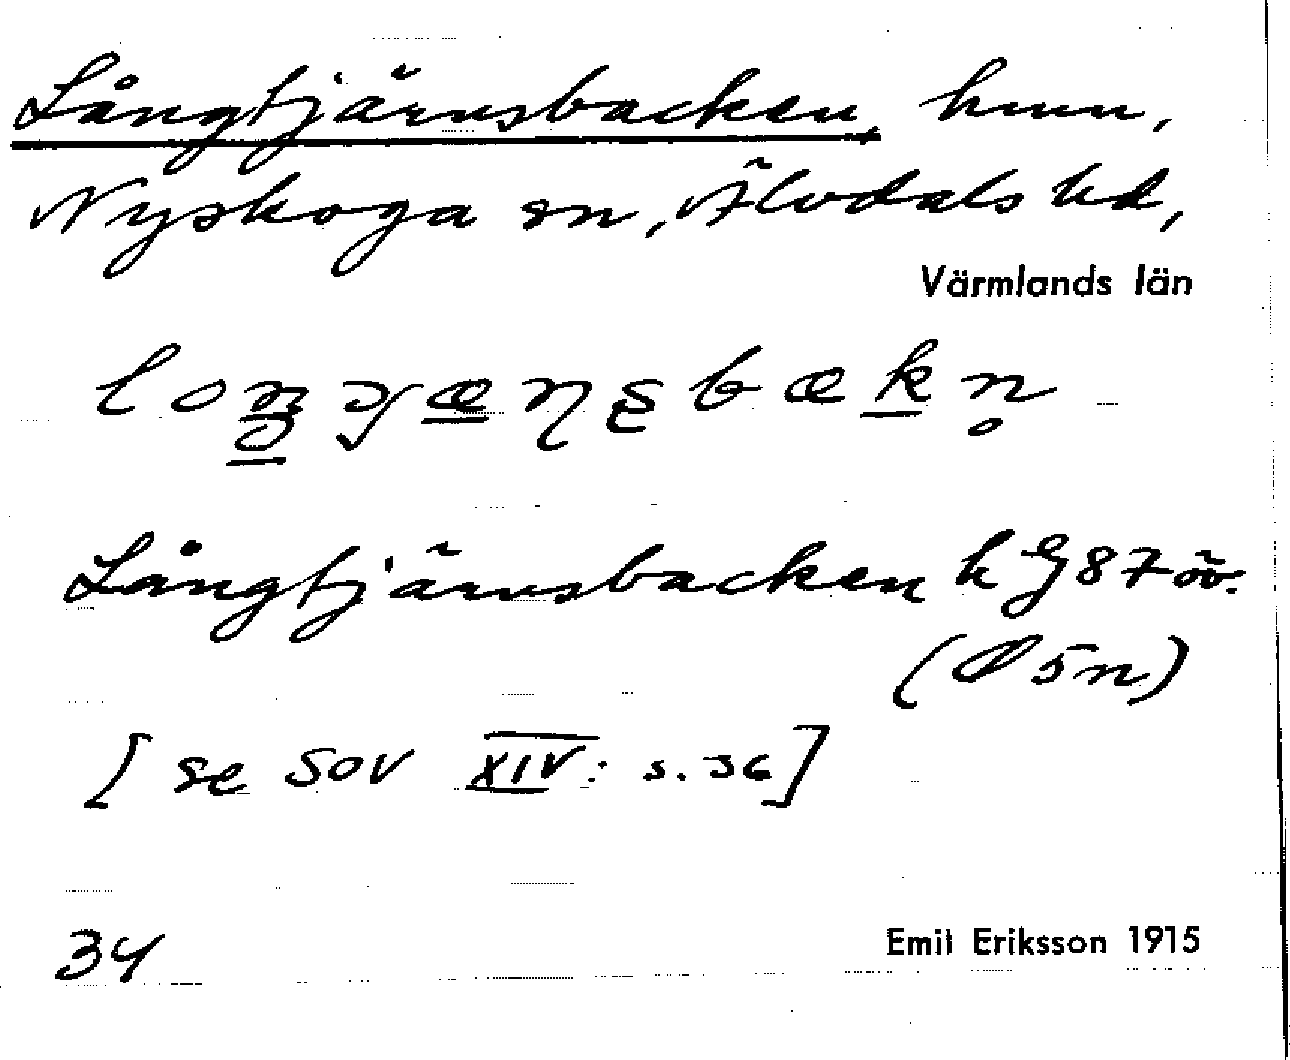 Långtjärnsbacken, hmn,
Nyskoga sn, Älvdals hd,
Värmlands län
Långtjärnsbacken h G 87 öv.
(Ø 5n)
[se SOV XIV: s. 36]
34
Emil Eriksson 1915